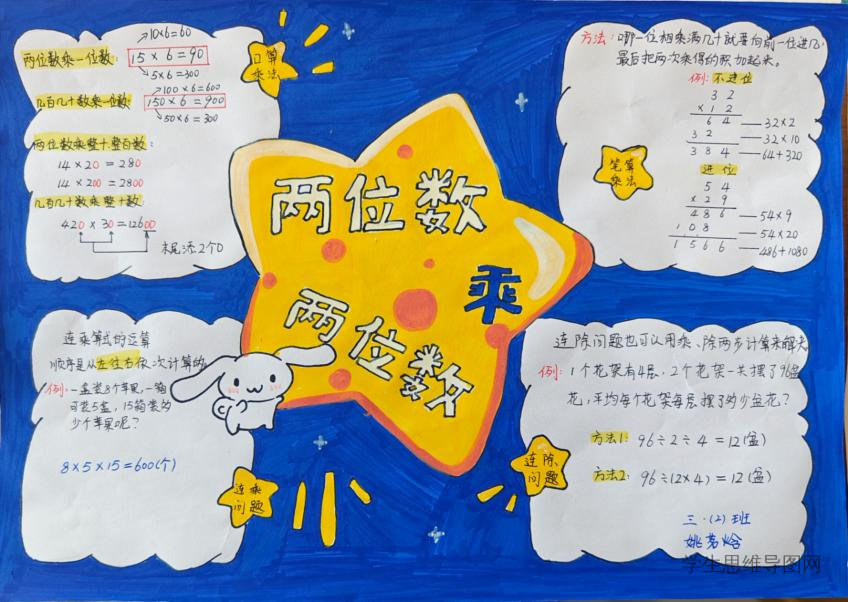 两位数乘一位数:
10×6=60
15×6=90
5×6=300
几百几十数乘一位数:
100×6=600
150×6=900
50×6=300
两位数乘整十、整百数:
14×20=280
14×200=2800
几百几十数乘整十数
420×30=12600
末尾添2个0
口算
乘法
方法:哪一位相乘满几十就要向前一位进几,
最后把两次乘得的积加起来。
例: 不进位
3 2
×1 2
6 4 — 32×2
3 2 — 32×10
3 8 4 — 64+320
进位
5 4
×2 9
4 8 6 — 54×9
1 0 8 — 54×20
1 5 6 6 — 486+1080
笔算
乘法
两位数
乘
两位数
连乘算式的运算
顺序是从左往右依次计算的
例:一盒装8个苹果,一箱
可装5盒,15箱装多
少个苹果呢?
8×5×15=600(个)
连乘
问题
连除问题也可以用乘、除两步计算来解决
例:1个花架有4层,2个花架一共摆了96盆
花,平均每个花架每层摆了多少盆花?
方法1: 96÷2÷4=12(盆)
方法2: 96÷(2×4)=12(盆)
连除
问题
三·(2)班
学生思维导图网